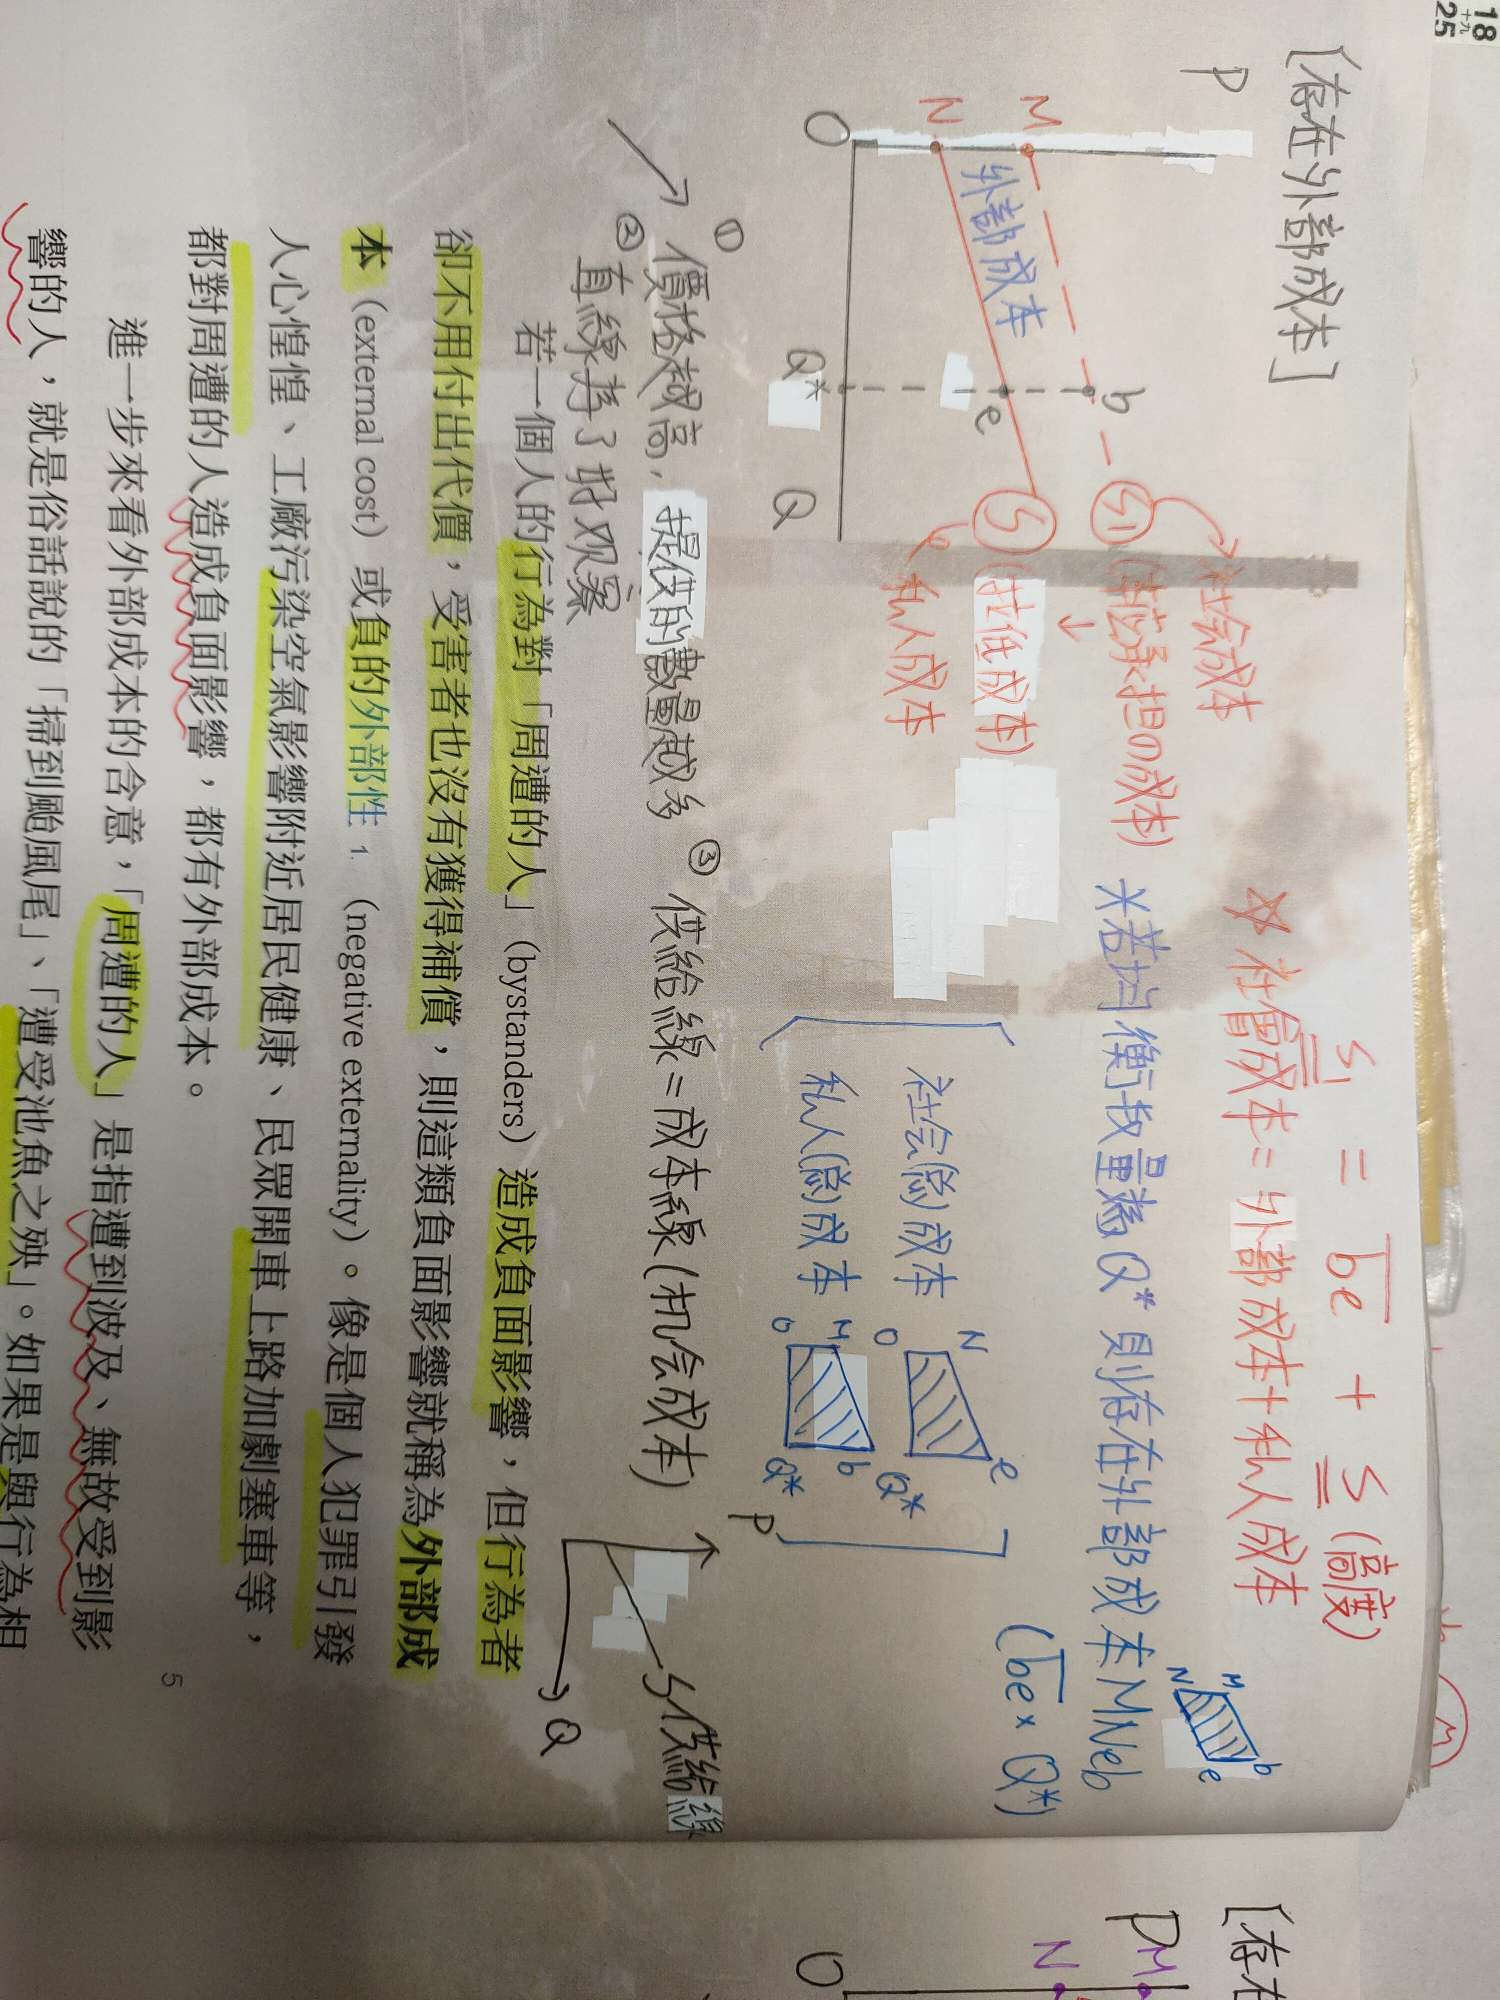 18
十九
25
〔存在外部成本〕
P
M
N
O
外部成本
b
e
Q*
Q
S1
(本應承担の成本)
社会成本
S
(拉低成本)
私人成本
S1 = be + S (高度)
☆ 社會成本 = 外部成本 + 私人成本
※若均衡數量為Q* 則存在外部成本MNeb
(be × Q*)
M
N
b
e
社会(總)成本
N
O
e
Q*
私人(總)成本
M
O
b
Q*
① 價格越高，提供的數量越多
② 直線夀了好观察
③ 供給線=成本線(机会成本)
P
S供給線
Q
若一個人的行為對「周遭的人」(bystanders)造成負面影響，但行為者
卻不用付出代價，受害者也沒有獲得補償，則這類負面影響就稱為外部成
本 (external cost) 或負的外部性 1. (negative externality)。像是個人犯罪引發
人心惶惶、工廠污染空氣影響附近居民健康、民眾開車上路加劇塞車等，
都對周遭的人造成負面影響，都有外部成本。
進一步來看外部成本的含意，「周遭的人」是指遭到波及、無故受到影
響的人，就是俗話說的「掃到颱風尾」、「遭受池魚之殃」。如果是與行為相
5
〔存在
P
M
N
O